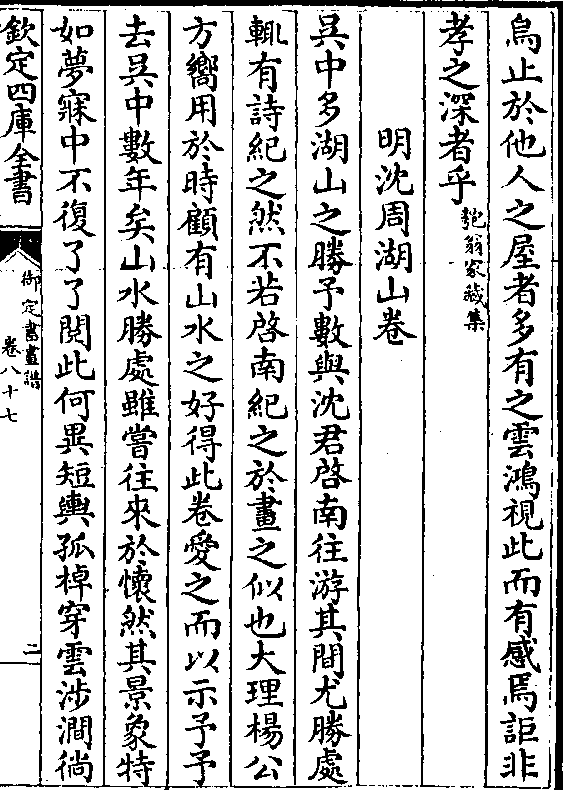 烏止於他人之屋者多有之雲鴻視此而有感焉詎非
孝之深者乎匏翁家藏集
明沈周湖山卷
吳中多湖山之勝予數與沈君啓南往游其間尤勝處
輒有詩紀之然不若啓南紀之於畫之似也大理楊公
方嚮用於時顧有山水之好得此卷愛之而以示予予
去吳中數年矣山水勝處雖嘗往來於懷然其景象特
如夢寐中不復了了閱此何異短輿孤棹穿雲涉澗徜
欽定四庫全書
御定書畫譜
卷八十七
二